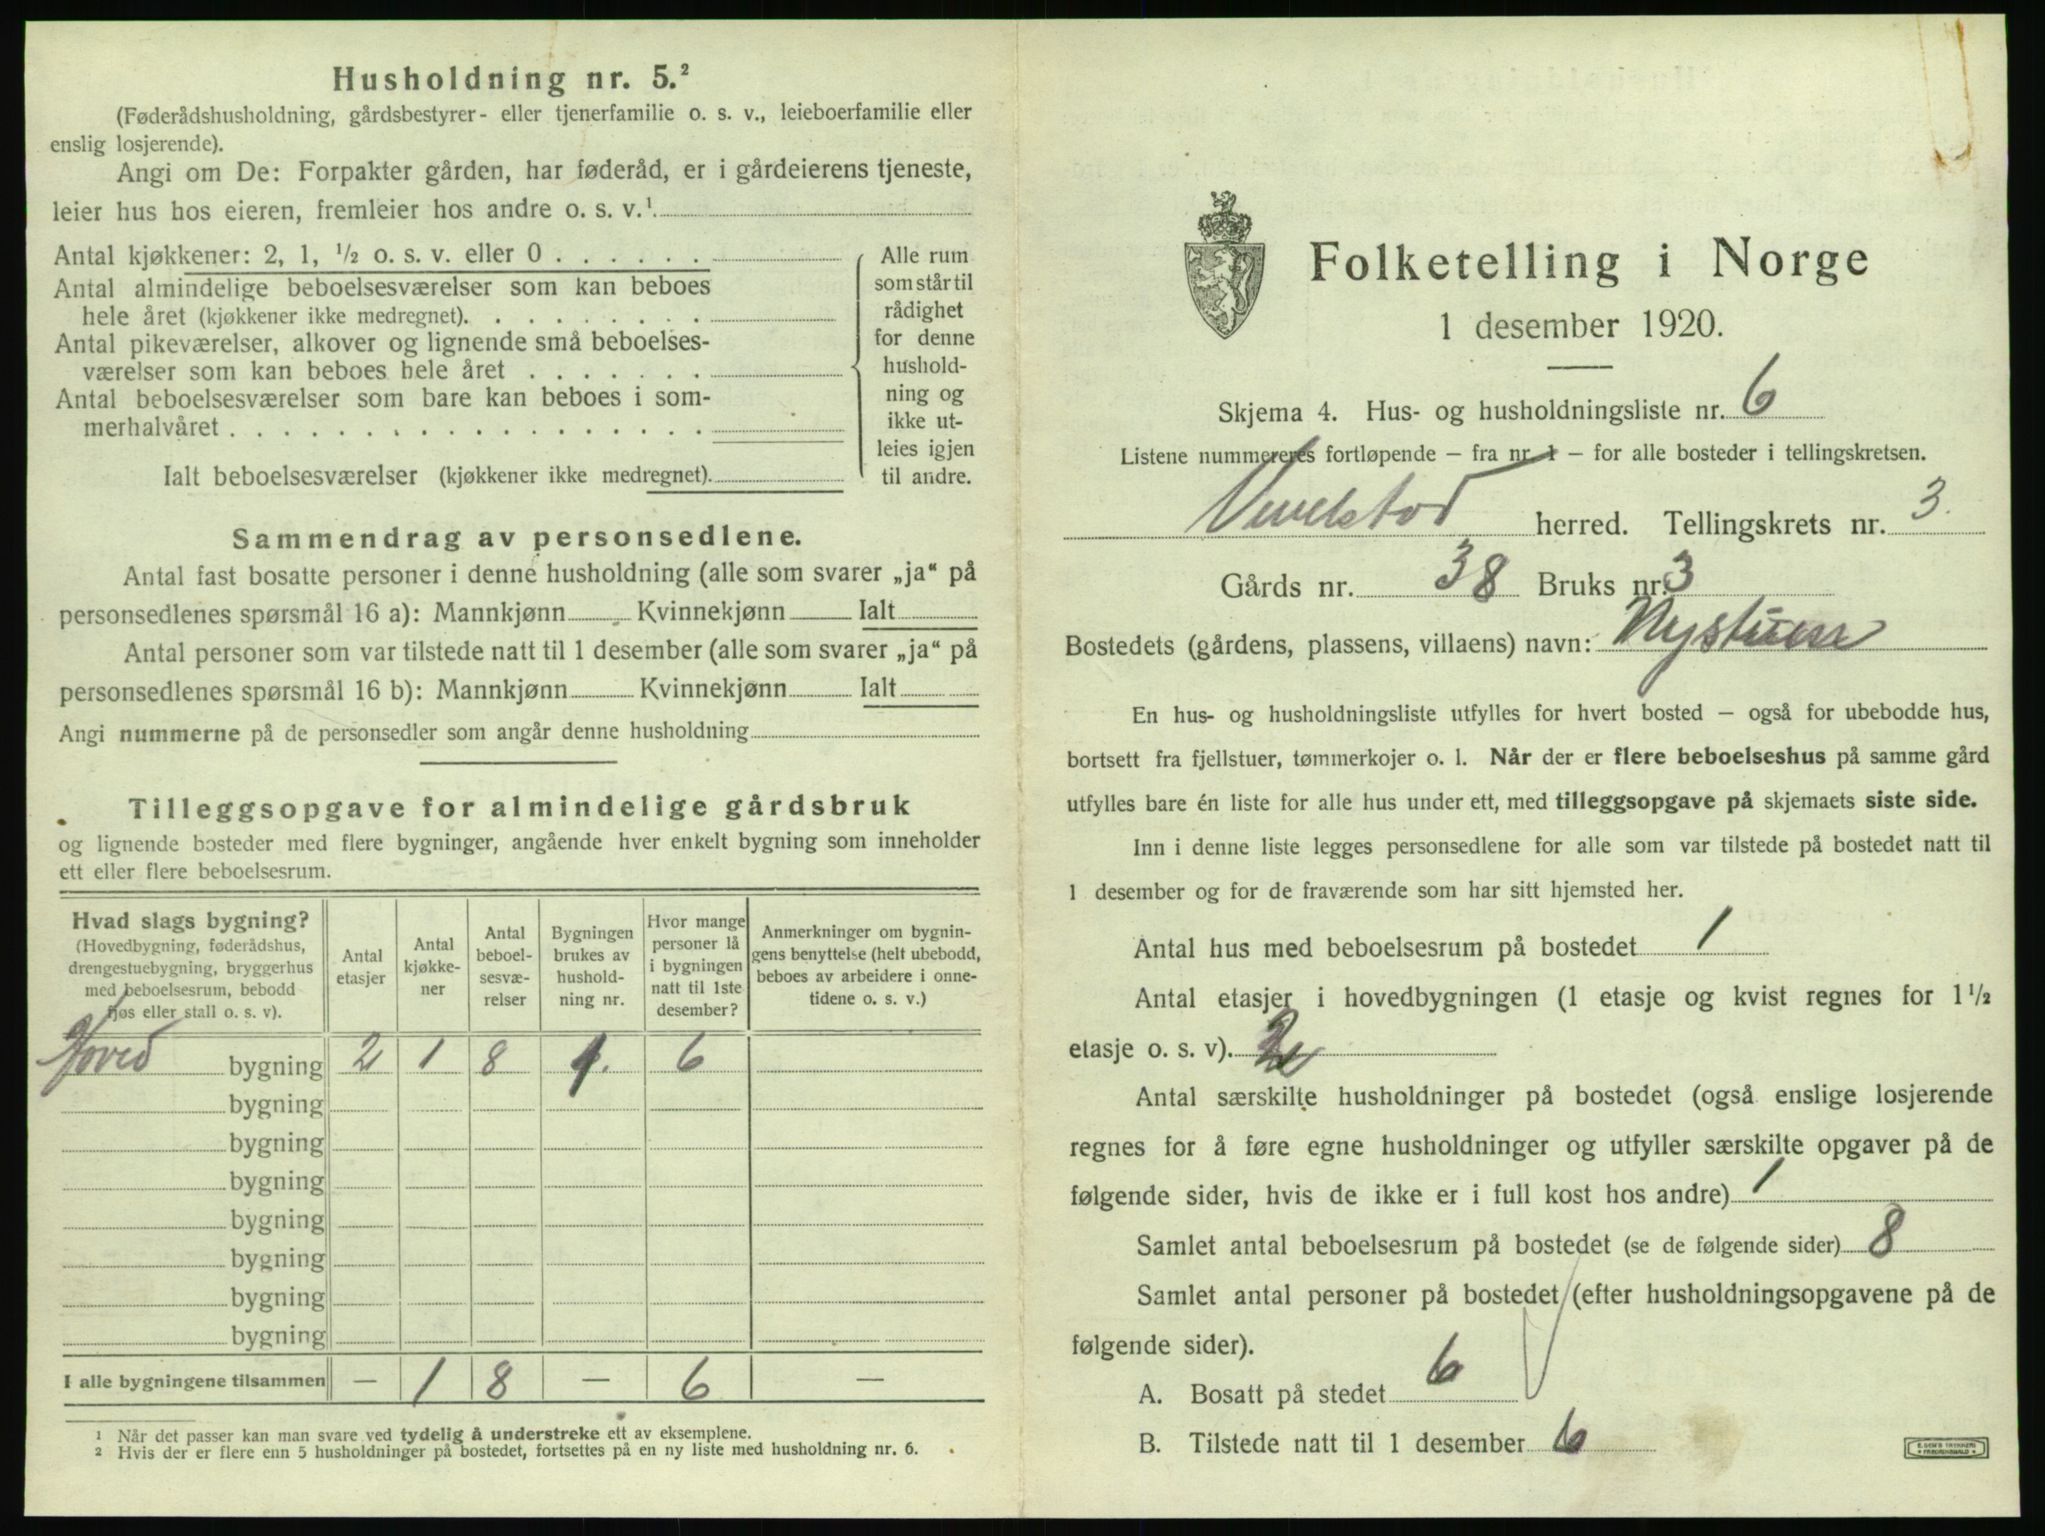 Husholdning nr. 5.²
(Føderådshusholdning, gårdsbestyrer- eller tjenerfamilie o. s. v., leieboerfamilie eller
enslig losjerende).
Angi om De: Forpakter gården, har føderåd, er i gårdeierens tjeneste,
leier hus hos eieren, fremleier hos andre o. s. v.¹
Antal kjøkkener: 2, 1, ½ o. s. v. eller 0 . . . . . .
Antal almindelige beboelsesværelser som kan beboes
hele året (kjøkkener ikke medregnet). . . . . . . . .
Antal pikeværelser, alkover og lignende små beboelses-
værelser som kan beboes hele året . . . . . . .
Antal beboelsesværelser som bare kan beboes i som-
merhalvåret . . . . . . . . . . . . . . . . . .
Ialt beboelsesværelser (kjøkkener ikke medregnet).
Alle rum
som står til
rådighet
for denne
hushold-
ning og
ikke ut-
leies igjen
til andre.
Sammendrag av personsedlene.
Antal fast bosatte personer i denne husholdning (alle som svarer „ja“ på
personsedlenes spørsmål 16 a): Mannkjønn Kvinnekjønn Ialt
Antal personer som var tilstede natt til 1 desember (alle som svarer „ja“ på
personsedlenes spørsmål 16 b): Mannkjønn Kvinnekjønn Ialt
Angi nummerne på de personsedler som angår denne husholdning
Tilleggsopgave for almindelige gårdsbruk
og lignende bosteder med flere bygninger, angående hver enkelt bygning som inneholder
ett eller flere beboelsesrum.
Hvad slags bygning?
(Hovedbygning, føderådshus,
drengestuebygning, bryggerhus
med beboelsesrum, bebodd
fjøs eller stall o. s. v).
Antal
etasjer
Antal
kjøkke-
ner
Antal
beboel-
sesvæ-
relser
Bygningen
brukes av
hushold-
ning nr.
Hvor mange
personer lå
i bygningen
natt til 1ste
desember?
Anmerkninger om bygnin-
gens benyttelse (helt ubebodd,
beboes av arbeidere i onne-
tidene o. s. v.)
Hoved bygning 2 1 8 1. 6
bygning
bygning
bygning
bygning
bygning
bygning
bygning
I alle bygningene tilsammen — 1 8 — 6 —
¹ Når det passer kan man svare ved tydelig å understreke ett av eksemplene.
² Hvis der er flere enn 5 husholdninger på bostedet, fortsettes på en ny liste med husholdning nr. 6.
Folketelling i Norge
1 desember 1920.
Skjema 4. Hus- og husholdningsliste nr. 6
Listene nummereres fortløpende — fra nr. 1 — for alle bosteder i tellingskretsen.
Vevelstad herred. Tellingskrets nr. 3.
Gårds nr. 38 Bruks nr. 3
Bostedets (gårdens, plassens, villaens) navn: Nystuen
En hus- og husholdningsliste utfylles for hvert bosted — også for ubebodde hus,
bortsett fra fjellstuer, tømmerkojer o. l. Når der er flere beboelseshus på samme gård
utfylles bare én liste for alle hus under ett, med tilleggsopgave på skjemaets siste side.
Inn i denne liste legges personsedlene for alle som var tilstede på bostedet natt til
1 desember og for de fraværende som har sitt hjemsted her.
Antal hus med beboelsesrum på bostedet 1
Antal etasjer i hovedbygningen (1 etasje og kvist regnes for 1½
etasje o. s. v). 2
Antal særskilte husholdninger på bostedet (også enslige losjerende
regnes for å føre egne husholdninger og utfyller særskilte opgaver på de
følgende sider, hvis de ikke er i full kost hos andre) 1
Samlet antal beboelsesrum på bostedet (se de følgende sider) 8
Samlet antal personer på bostedet (efter husholdningsopgavene på de
følgende sider).
A. Bosatt på stedet 6
B. Tilstede natt til 1 desember 6